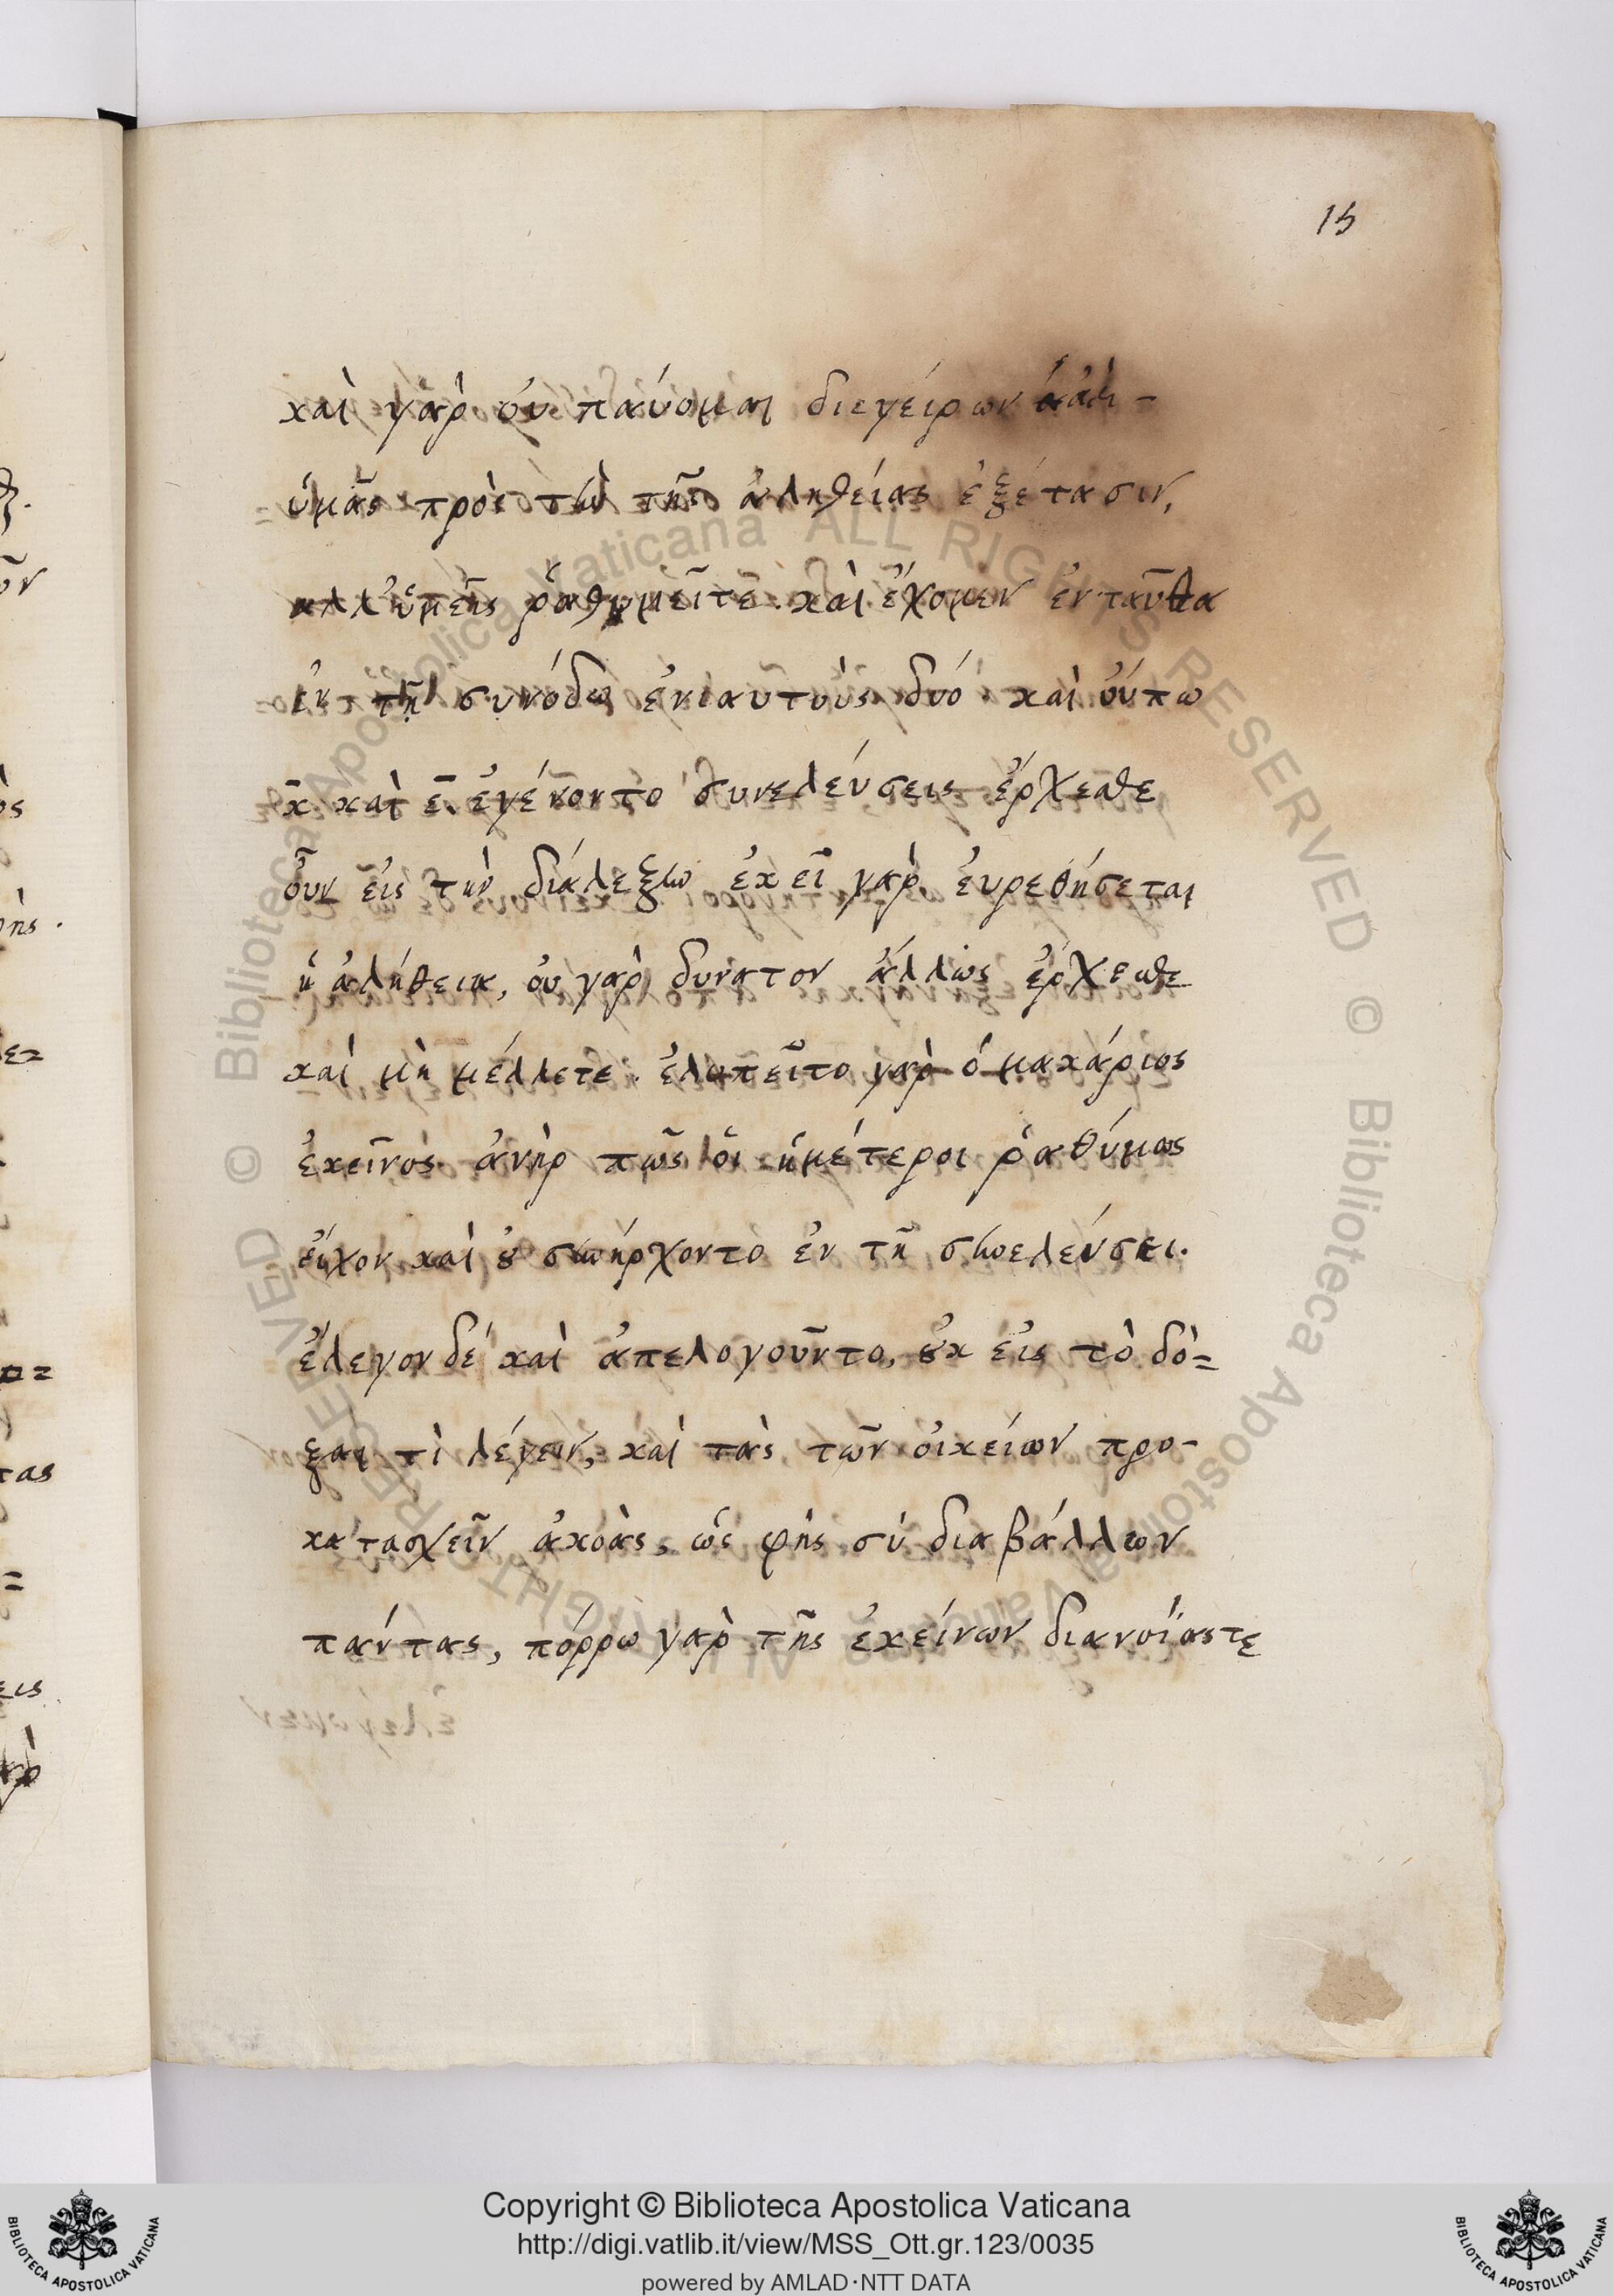 15
καὶ γὰρ οὐ παύομαι διεγείρων ἀεὶ -
ὑμᾶς πρὸς τὴν τῆς ἀληθείας ἐξέτασιν,
ἀλλ' ὑμεῖς ῥαθυμεῖτε. καὶ ἔχομεν ἐνταῦθα
ἐν τῇ συνόδω ἐνιαυτοὺς δυό. καὶ οὔπω
κ̄ καὶ ε̄. ἐγένοντο συνελεύσεις ἔρχεσθε
οὖν εἰς τὴν διάλεξιν ἐκεῖ γὰρ εὑρεθήσεται
ἡ ἀλήθεια, οὐ γαρ δυνατον ἄλλως ἔρχεσθε
καὶ μὴ μέλλετε. ἐλυπεῖτο γαρ ὁ μακάριος
ἐκεῖνος ἀνὴρ πῶς οἱ ἡμέτεροι ῥαθύμως
εἶχον καὶ οὐ συνήρχοντο ἐν τῆ συνελεύσει.
ἔλεγον δὲ καὶ ἀπελογοῦντο, οὐκ εἰς τὸ δό=
ξαι τὶ λέγειν, καὶ τὰς τῶν οἰκείων προ-
κατασχεῖν ἀκοὰς, ὡς φὴς σὺ διαβάλλων
πάντας, πόρρω γαρ τῆς ἐκείνων διανοίας τε
Copyright © Biblioteca Apostolica Vaticana
http://digi.vatlib.it/view/MSS_Ott.gr.123/0035
powered by AMLAD·NTT DATA